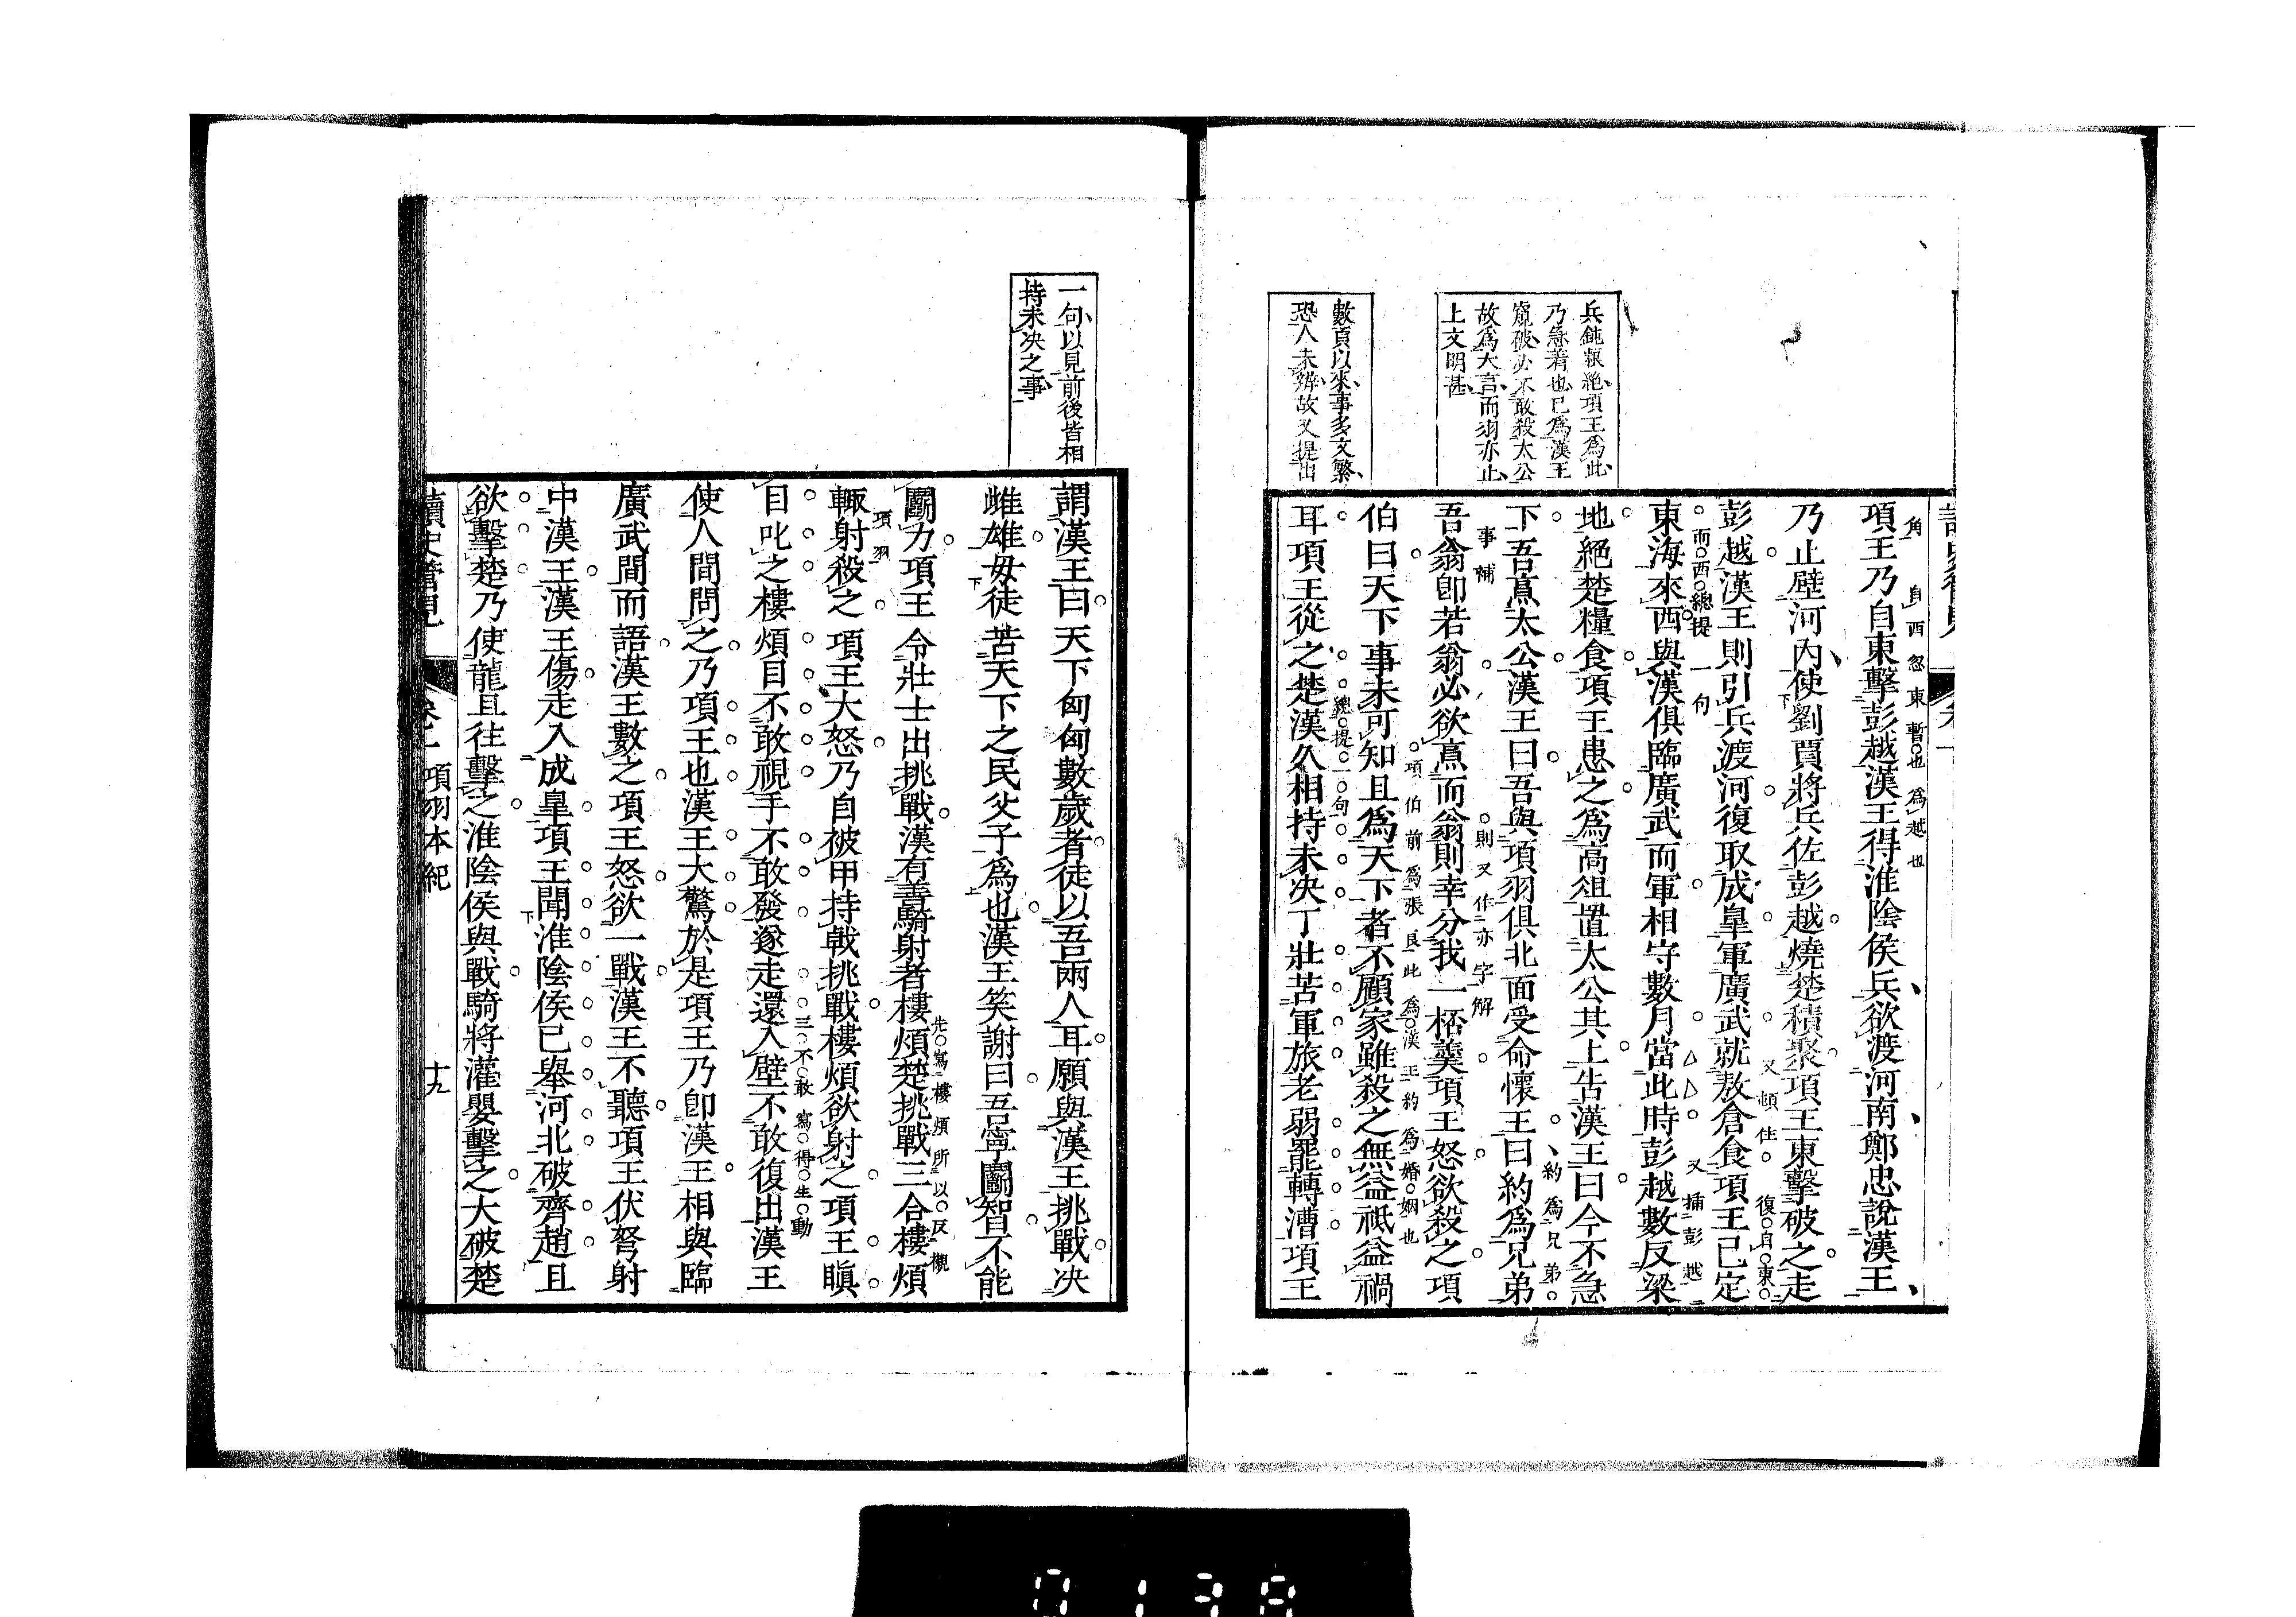 兵鈍粮絶項王爲此
乃急着也已爲漢王
窺破必不敢殺太公
故爲大言而羽亦止
上文明甚
數頁以來事多文繁
恐人未辨故又提出
角自西忽東暫也爲越也
項王乃自東擊彭越漢王得淮陰侯兵欲渡河南鄭忠說漢王
乃止壁河內使劉賈將兵佐彭越燒楚積聚項王東擊破之走
又頓住復自東
彭越漢王則引兵渡河復取成皐軍廣武就敖倉食項王已定
而西總提一句又插彭越
東海來西與漢俱臨廣武而軍相守數月當此時彭越數反梁
地絕楚糧食項王患之爲高俎置太公其上告漢王曰今不急
約爲兄弟
下吾烹太公漢王曰吾與項羽俱北面受命懷王曰約爲兄弟
事補則又作亦字解
吾翁卽若翁必欲烹而翁則幸分我一桮羹項王怒欲殺之項
項伯前爲張良此爲漢王約爲婚姻也
伯曰天下事未可知且爲天下者不顧家雖殺之無益祇益禍
總提一句
耳項王從之楚漢久相持未决丁壯苦軍旅老弱罷轉漕項王
一句以見前後皆相
持未决之事
謂漢王曰天下匈匈數歲者徒以吾兩人耳願與漢王挑戰决
雌雄毋徒苦天下之民父子爲也漢王笑謝曰吾寧鬭智不能
先寫樓煩所以反襯
鬭力項王令壯士出挑戰漢有善騎射者樓煩楚挑戰三合樓煩
項羽
輙射殺之項王大怒乃自被甲持戟挑戰樓煩欲射之項王瞋
三不敢寫得生動
目叱之樓煩目不敢視手不敢發遂走還入壁不敢復出漢王
使人間問之乃項王也漢王大驚於是項王乃卽漢王相與臨
廣武間而語漢王數之項王怒欲一戰漢王不聽項王伏弩射
中漢王漢王傷走入成皐項王聞淮陰侯已舉河北破齊趙且
欲擊楚乃使龍且往擊之淮陰侯與戰騎將灌嬰擊之大破楚
讀史管見 卷一 項羽本紀 十九